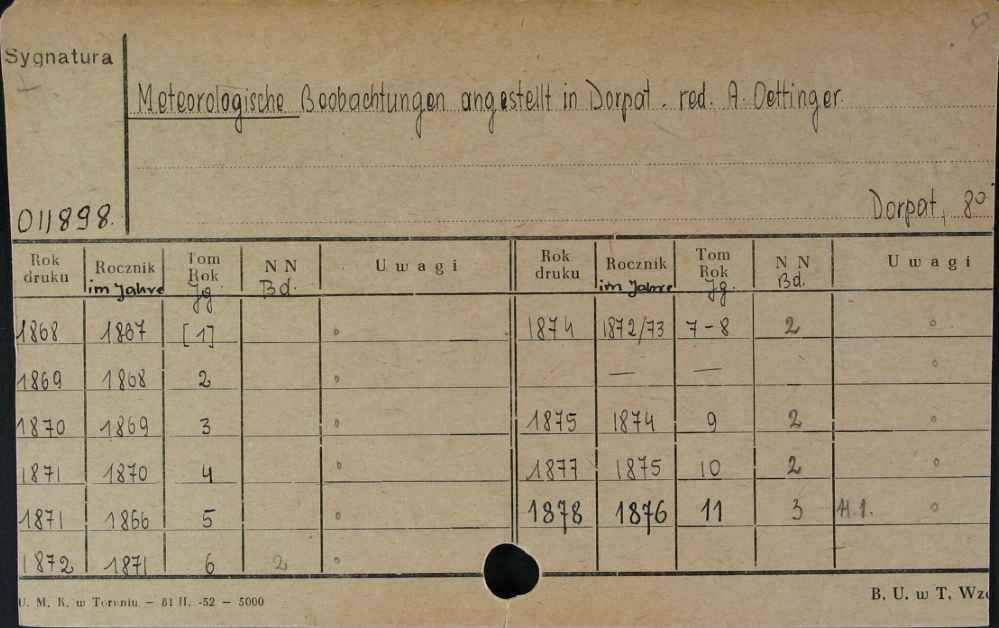 Sygnatura
Meteorologische Beobachtungen angestellt in Dorpat. red. A. Oettinger.
011898.
Dorpat, 8º
Rok druku Rocznik im Jahre Tom Rok Jg. NN Bd. Uwagi Rok druku Rocznik im Jahre Tom Rok Jg. NN Bd. Uwagi
1868 1867 [1] 1874 1872/73 7-8 2
1869 1868 2 — —
1870 1869 3 1875 1874 9 2
1871 1870 4 1877 1875 10 2
1871 1866 5 1878 1876 11 3 H.1.
1872 1871 6 2
U. M. K. w Toruniu. — 81 II. -52 — 5000
B. U. w T. Wzó